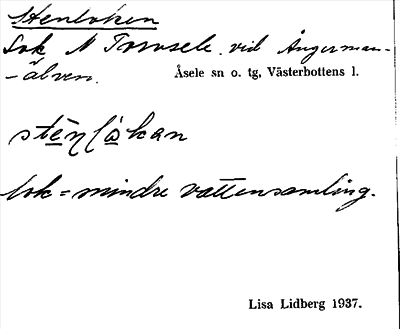 Stenloken
Lok N Torvsele vid Ångerman-
-älven. Åsele sn o. tg, Västerbottens l.
lok = mindre vattensamling.
Lisa Lidberg 1937.